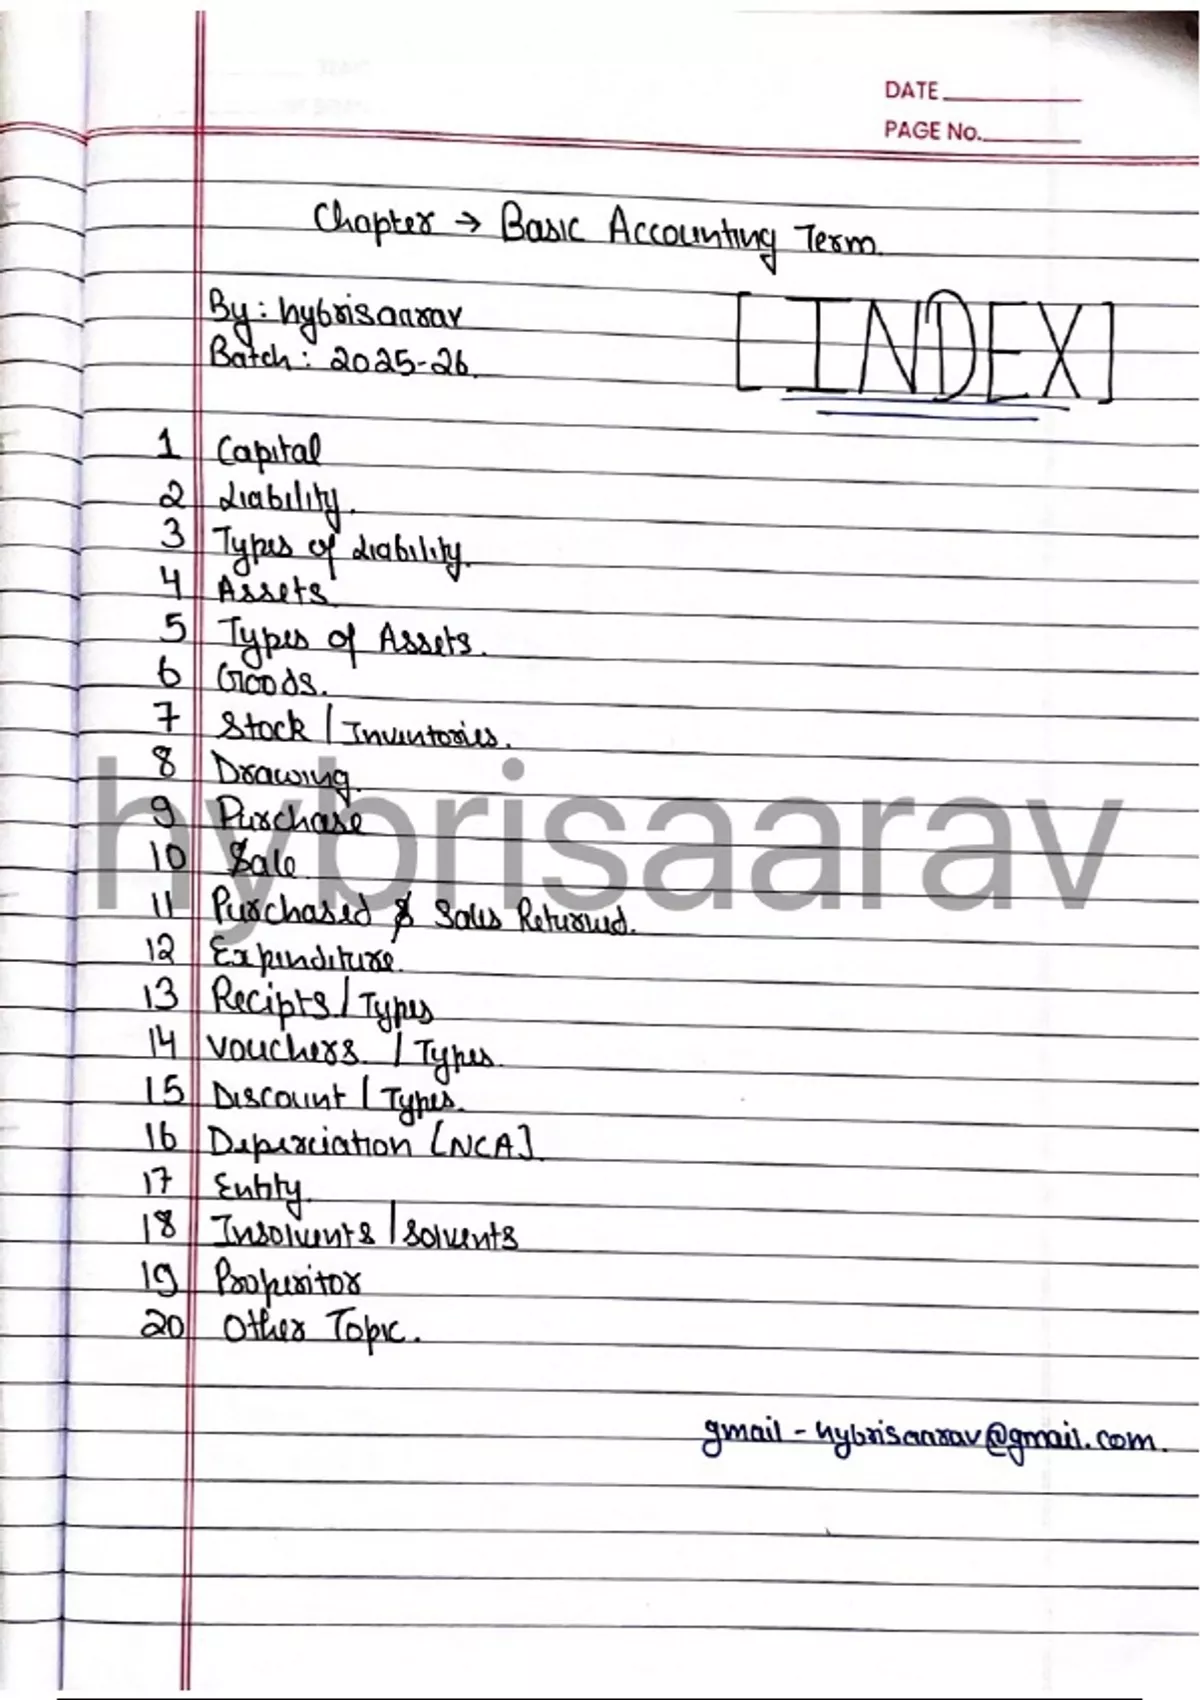 DATE
PAGE No.
Chapter → Basic Accounting Term.
By : hybrisaarav
Batch : 2025-26.
[INDEX]
1 Capital
2 Liability.
3 Types of Liability.
4 Assets
5 Types of Assets.
6 Goods.
7 Stock / Inventories.
8 Drawing.
9 Purchase
10 Sale.
11 Purchased & Sales Returned.
12 Expenditure.
13 Recipts / Types
14 Vouchers. / Types.
15 Discount / Types.
16 Deperciation [NCA].
17 Entity.
18 Insolvents / Solvents
19 Properitor
20 Other Topic.
hybrisaarav
gmail - hybrisaarav@gmail.com.